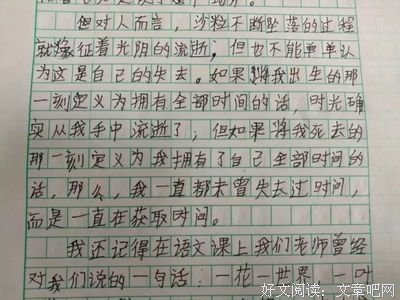 但对人而言，沙粒不断坠落的过程
就像征着光阴的流逝；但也不能单单认
为这是自己的失去。如果将我出生的那
一刻定义为拥有全部时间的话，时光确
实从我手中流逝了，但如果将我死去的
那一刻定义为我拥有了自己全部时间的
话，那么，我一直都未曾失去过时间，
而是一直在获取时间。
我还记得在语文课上我们老师曾经
对我们说的一句话：一花一世界，一叶
好文阅读：文章吧网